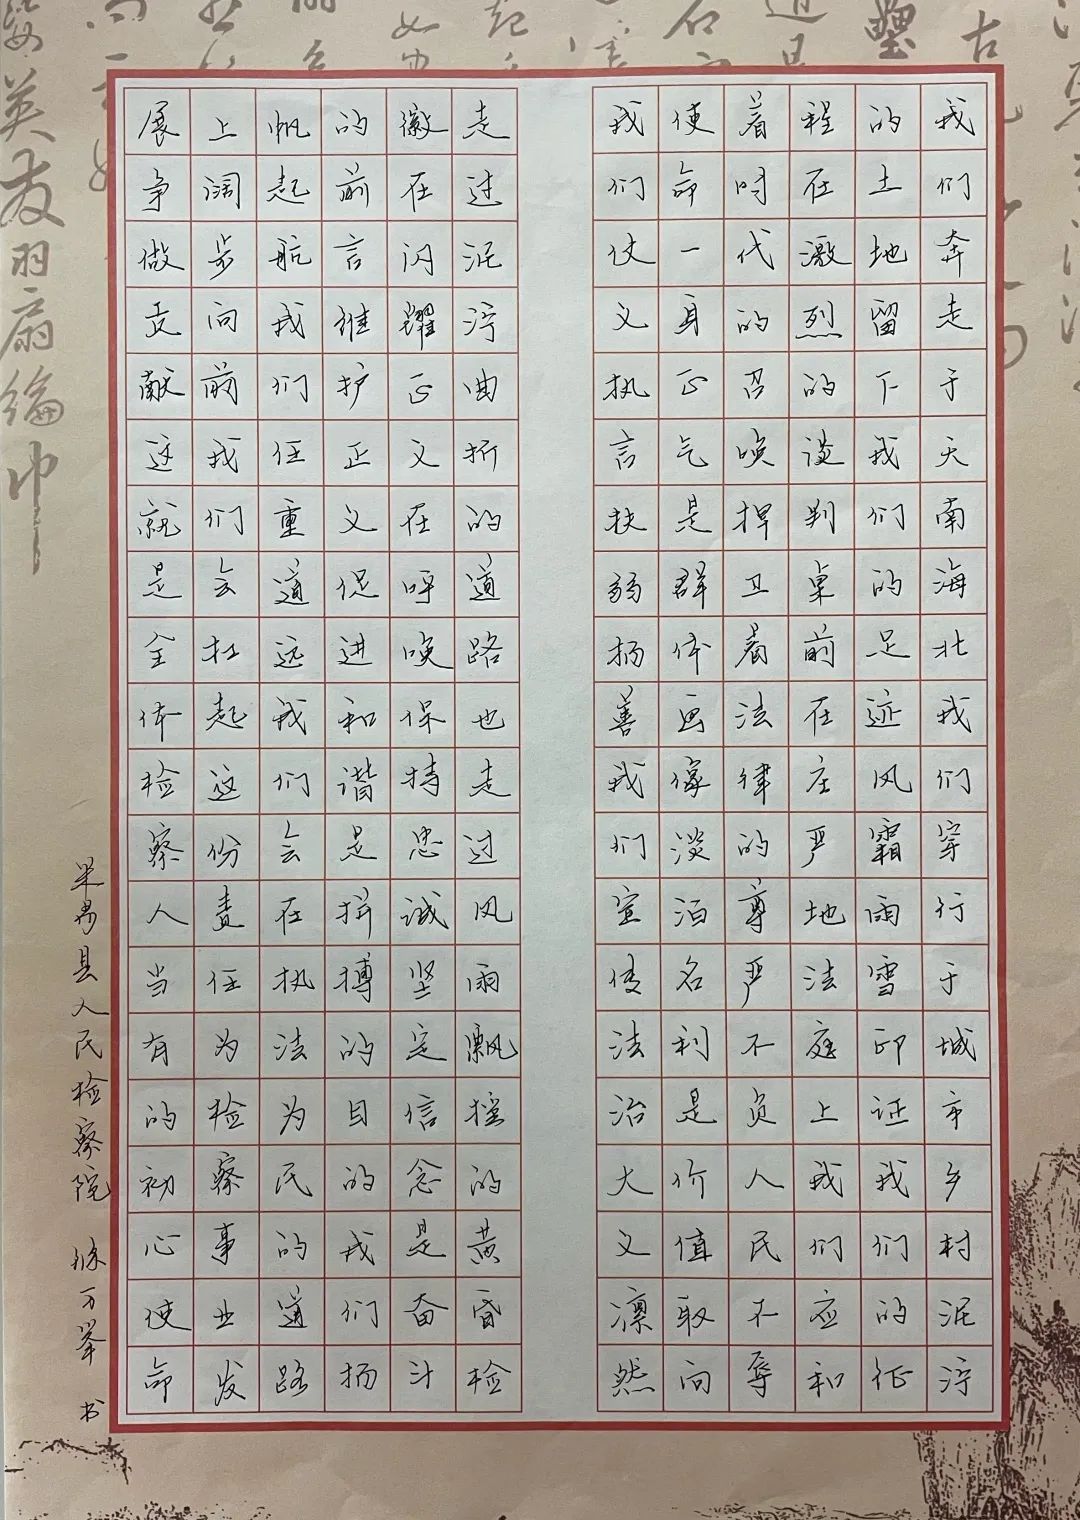 我们奔走于天南海北我们穿行于城市乡村泥泞
的土地留下我们的足迹风霜雨雪印证我们的征
程在激烈的谈判桌前在庄严地法庭上我们应和
着时代的召唤捍卫着法律的尊严不负人民不辱
使命一身正气是群体画像淡泊名利是价值取向
我们仗义执言扶弱扬善我们宣传法治大义凛然
走过泥泞曲折的道路也走过风雨飘摇的黄昏检
徽在闪耀正义在呼唤保持忠诚坚定信念是奋斗
的前言维护正义促进和谐是拼搏的目的我们扬
帆起航我们任重道远我们会在执法为民的道路
上阔步向前我们会扛起这份责任为检察事业发
展争做贡献这就是全体检察人当有的初心使命
米易县人民检察院 万举 书
英友羽扇綸巾